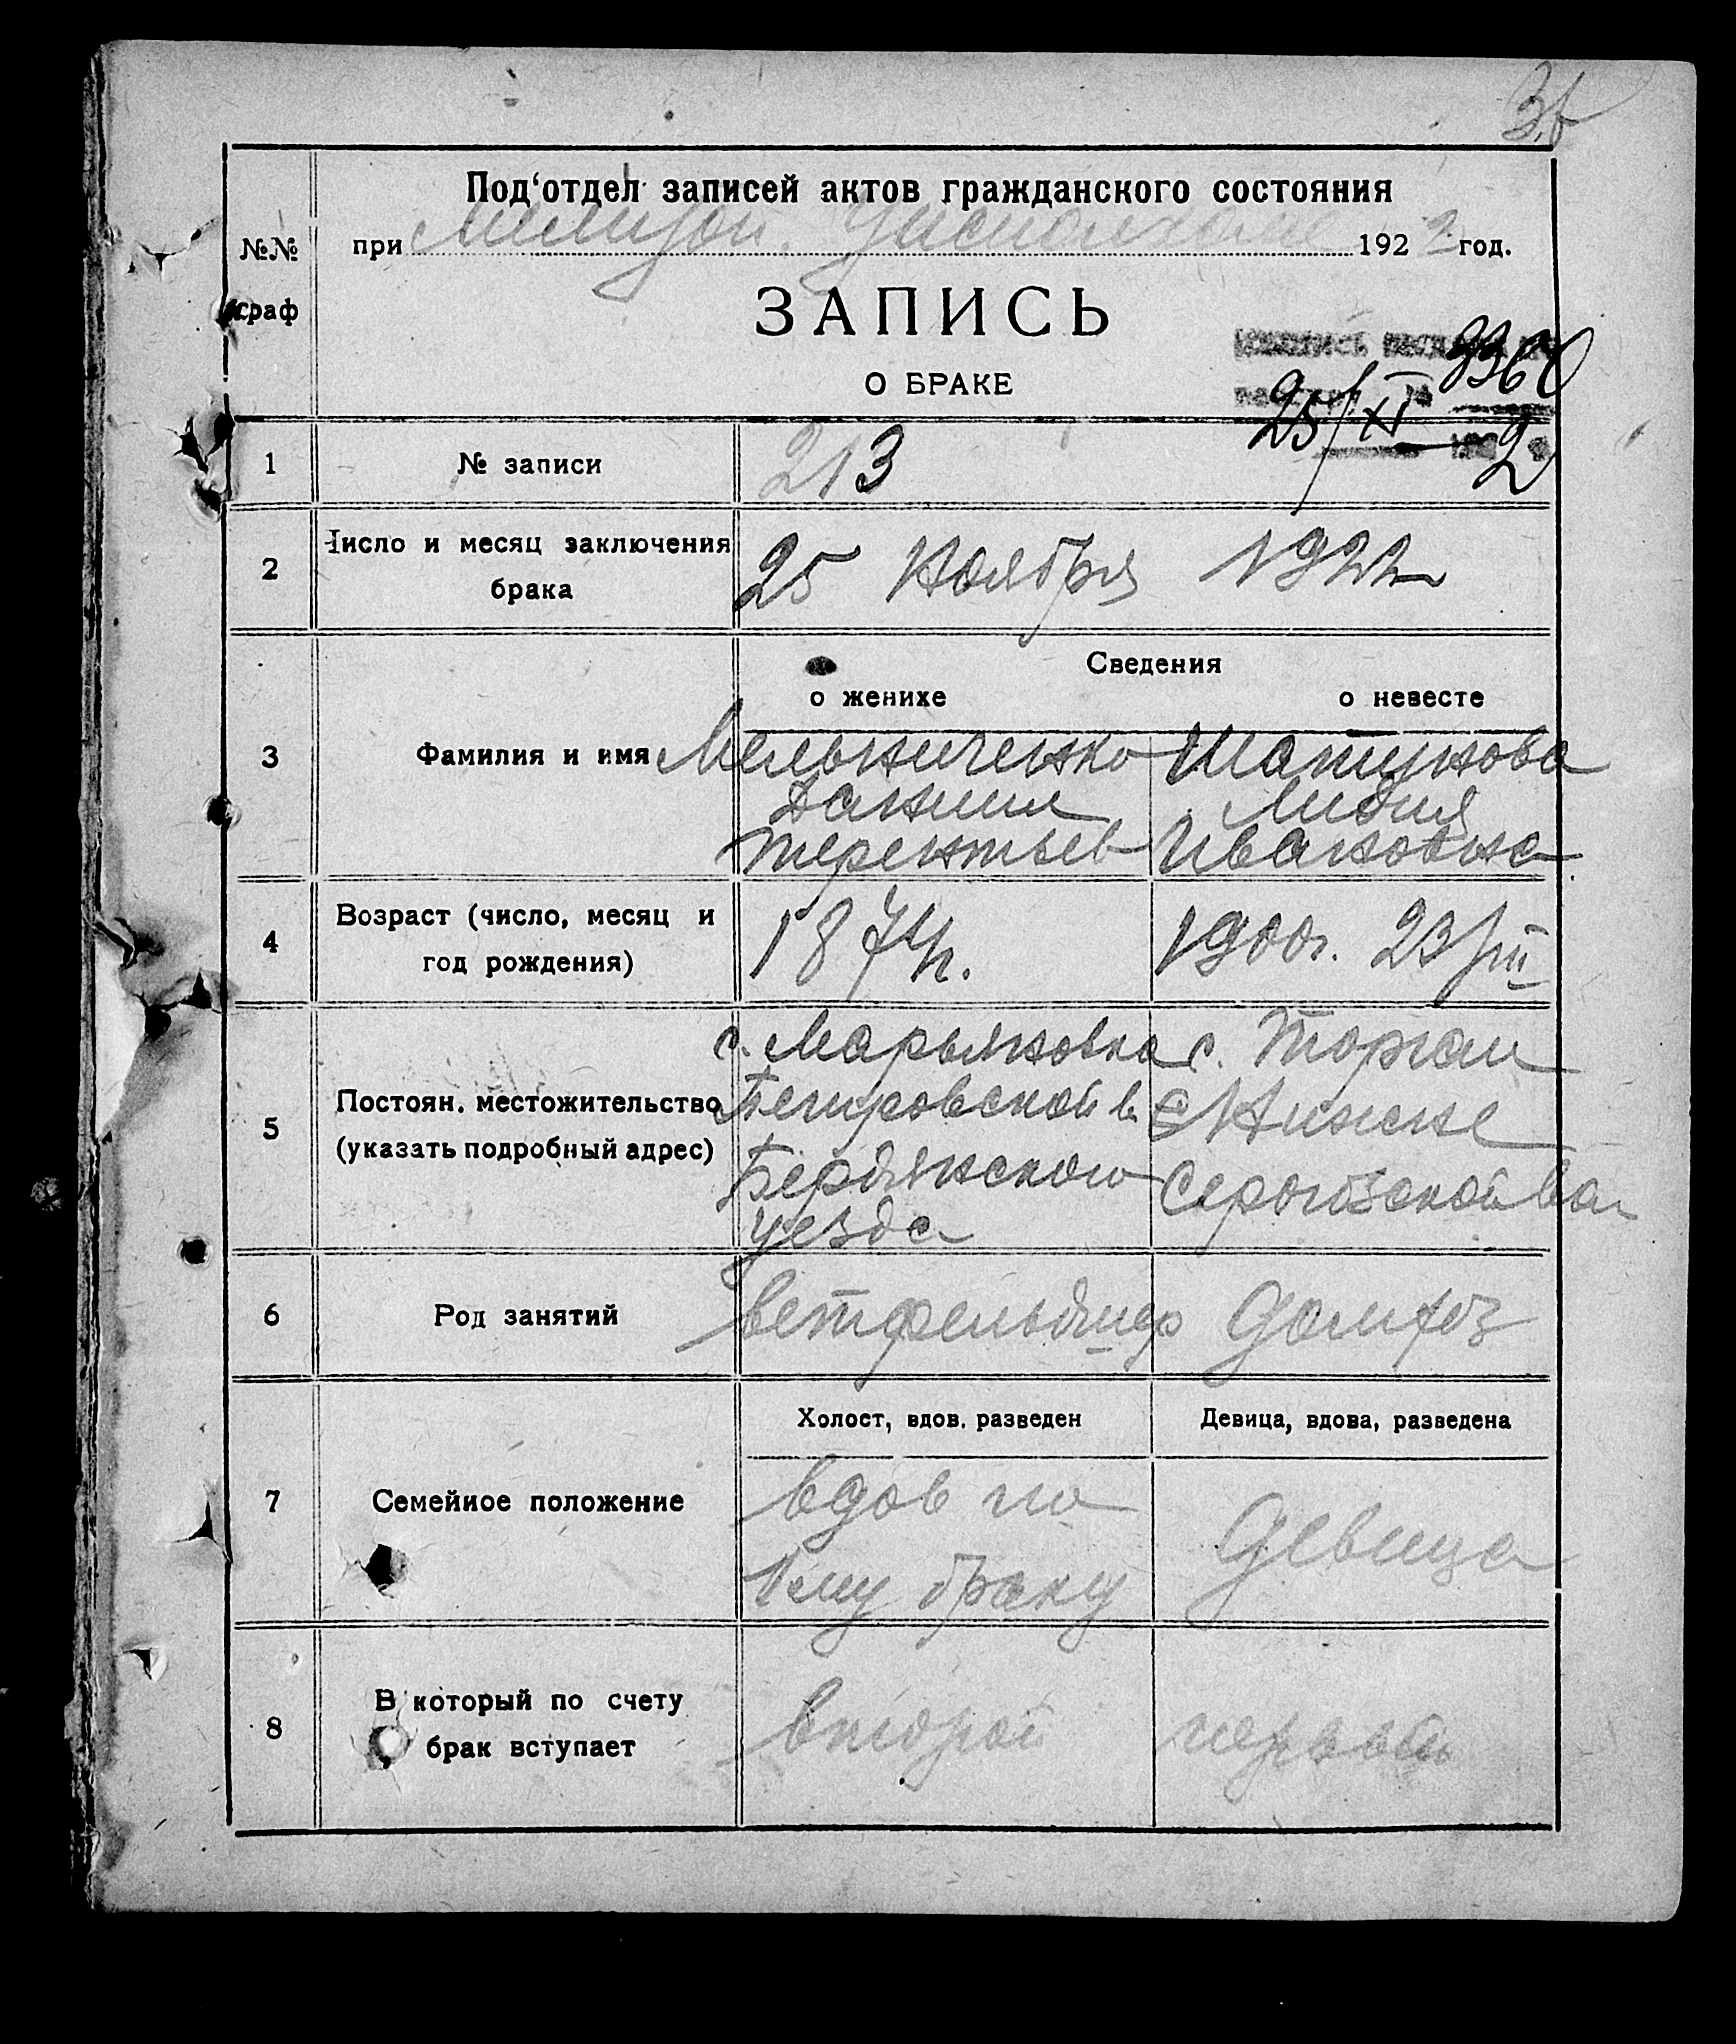 Под‘отдел записей актов гражданского состояния
№№ граф
при Мелитоп. Уисполкоме 1922 год.
ЗАПИСЬ
О БРАКЕ
3360
25/XI 2
1 № записи 213
2 Число и месяц заключения брака 25 Ноября 1922
Сведения
о женихе о невесте
3 Фамилия и имя Мельниченко Шапунова
Даниил Лидия
Терентьев Ивановна
4 Возраст (число, месяц и год рождения) 1874г. 1900г. 23/III
5 Постоян. местожительство (указать подробный адрес)
с. Марьяновка с. Торгаи
Петровской в. Нижне
Бердянского Серогозской вол
уезда
6 Род занятий ветфельдшер домхоз
Холост, вдов. разведен Девица, вдова, разведена
7 Семейное положение вдов по девица
1ему браку
8 В который по счету брак вступает второй первый